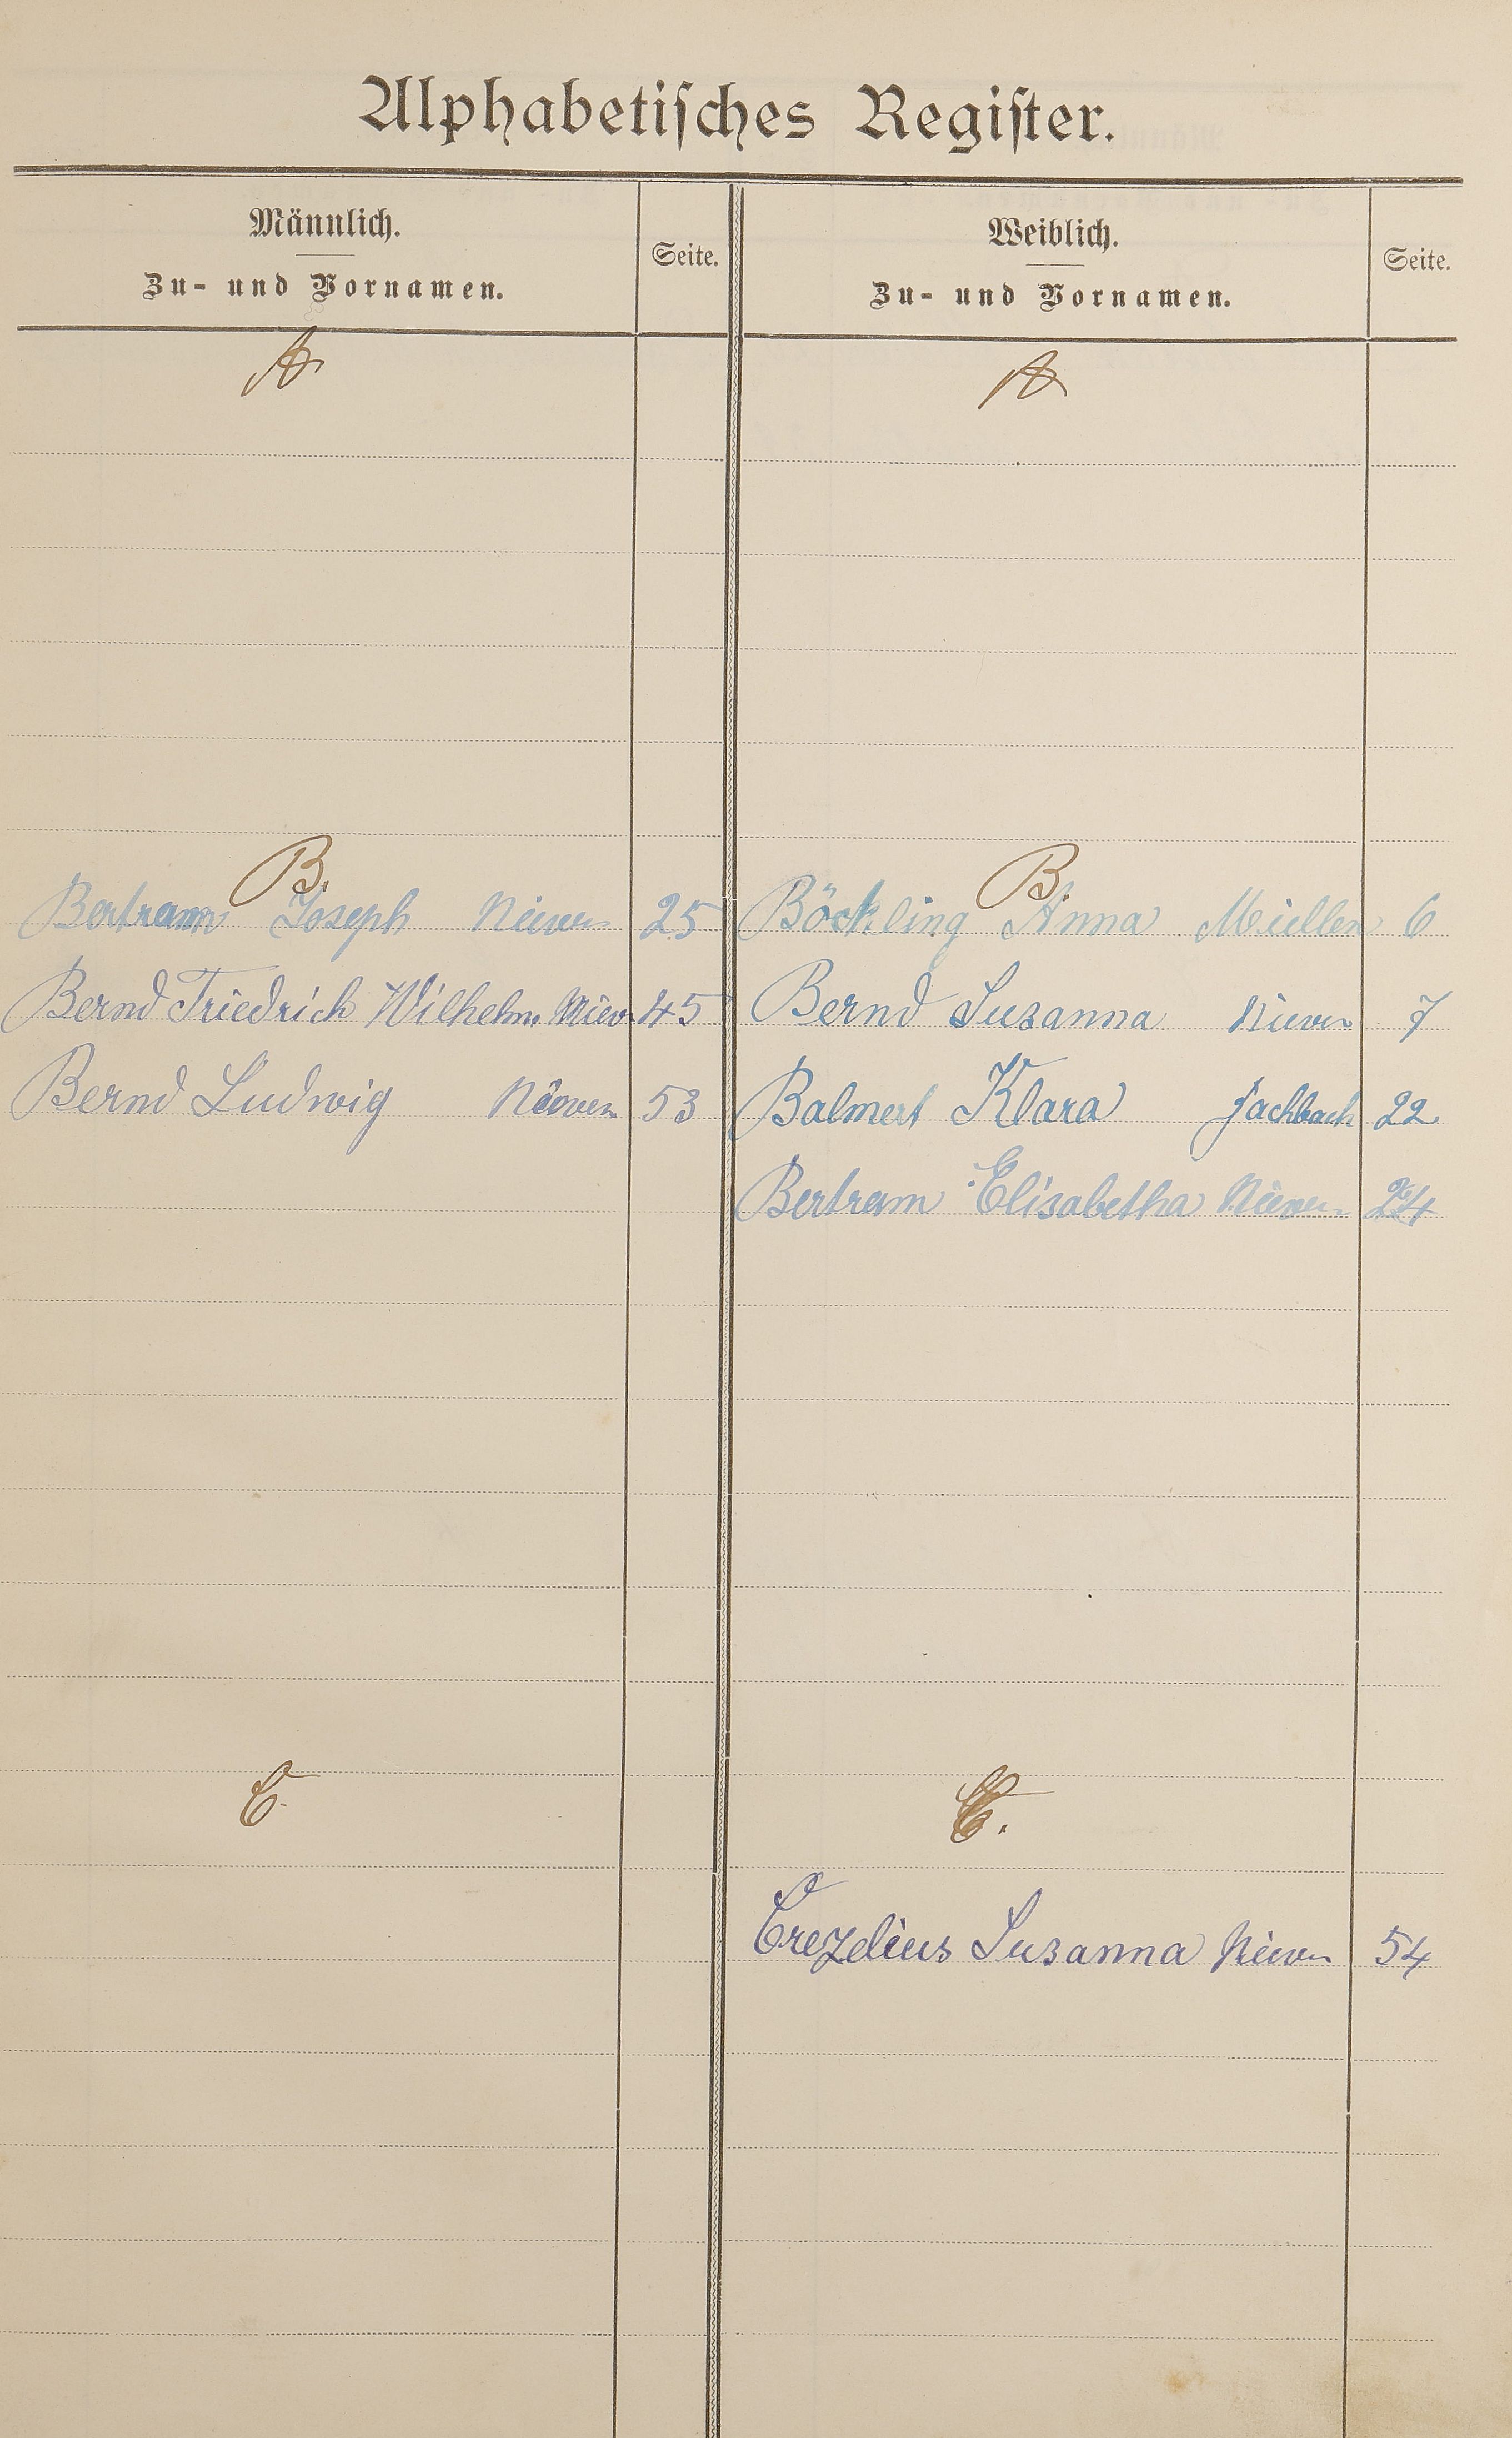 Alphabetisches Register.
Männlich.
Zu- und Vornamen.
Seite.
Weiblich.
Zu- und Vornamen.
Seite.
A
A
B.
B.
Bertram Joseph Nievern 25
Böckling Anna Miellen 6
Bernd Friedrich Wilhelm Niev. 45
Bernd Susanna Nievern 7
Bernd Ludwig Nievern 53
Balmert Klara Fachbach 22
Bertram Elisabetha Nievern 24
C.
C.
Crezelius Susanna Nievern 54